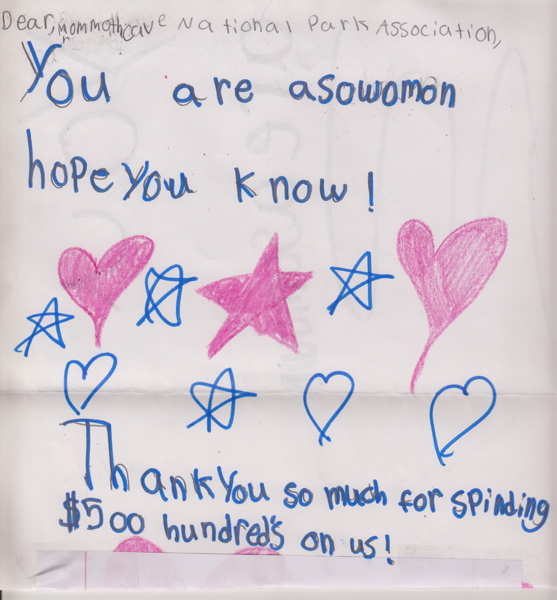 Dear, mommothcave National Park Association,
You are asowomon
hope you know!
Thank You so much for spinding
$500 hundred's on us!